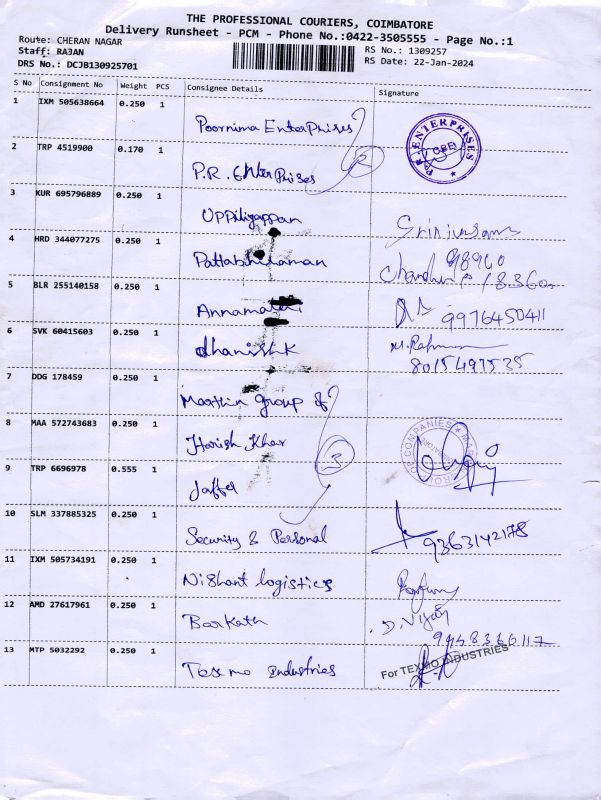 THE PROFESSIONAL COURIERS, COIMBATORE
Delivery Runsheet - PCM - Phone No.:0422-3505555 - Page No.:1
Route: CHERAN NAGAR
Staff: RAJAN
DRS No.: DCJB130925701
RS No.: 1309257
RS Date: 22-Jan-2024
S No Consignment No Weight PCS Consignee Details Signature
1 IXM 505638664 0.250 1 Poornima Enterprises
2 TRP 4519900 0.170 1 P.R. Enterprises
2
ENTERPRISES
CBE
3 KUR 695796889 0.250 1 Uppiliyappan
4 HRD 344077275 0.250 1 Pattabhiraman
5 BLR 255140158 0.250 1 Annamalai 9976450411
6 SVK 60415603 0.250 1 dhanishk M.Rahman
8015497535
7 DDG 178459 0.250 1 Marthin group of
8 MAA 572743683 0.250 1 Harish Kher
OF COMPANIES
9 TRP 6696978 0.555 1 Jaffer
3
10 SLM 337885325 0.250 1 Security & Personal 9363142178
11 IXM 505734191 0.250 1 Nishant logistics
12 AMD 27617961 0.250 1 Barkath D. Vijay
13 MTP 5032292 0.250 1 Texmo Industries For TEXMO INDUSTRIES